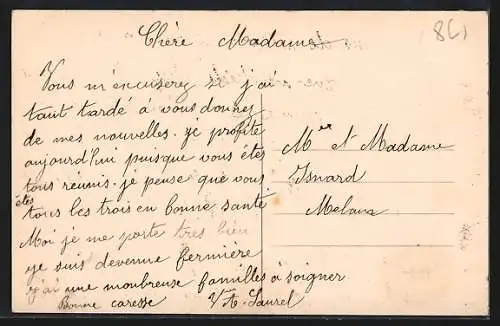 Chère Madame
Vous m'excuserez si j'ai
tant tardé à vous donner
de mes nouvelles. je profite
aujourd'hui puisque vous êtes
tous réunis. je pense que vous
êtes
tous les trois en bonne santé
Moi je me porte très bien
je suis devenue fermière
j'ai une nombreuse familles à soigner
Bonne caresse
Laurel
Mer et Madame
Isnard